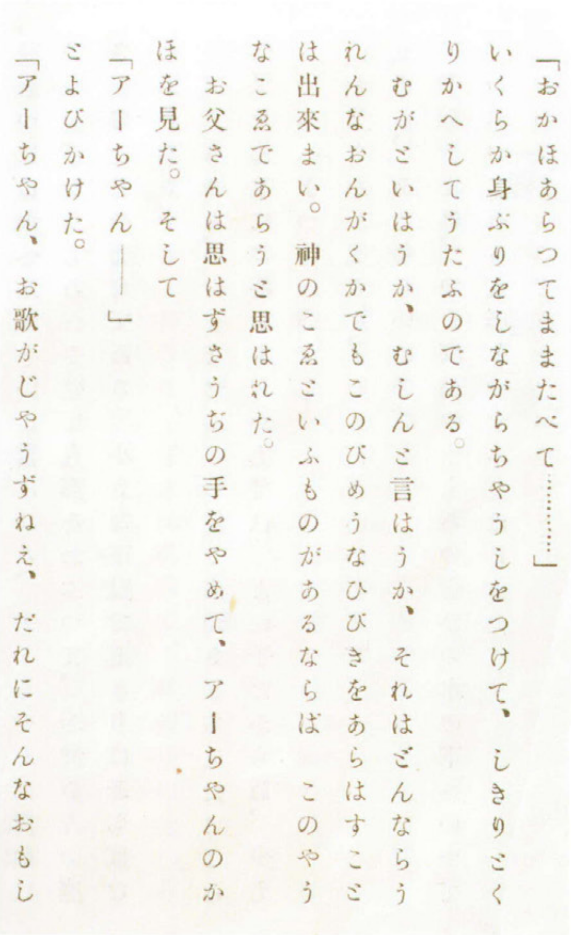 「おかほあらつてままたべて…………」
いくらか身ぶりをしながらちやうしをつけて、しきりとく
りかへしてうたふのである。
むがといはうか、むしんと言はうか、それはどんならう
れんなおんがくかでもこのびめうなひびきをあらはすこと
は出來まい。神のこゑといふものがあるならば　このやう
なこゑであらうと思はれた。
お父さんは思はずさうぢの手をやめて、アーちやんのか
ほを見た。そして
「アーちやん――」
とよびかけた。
「アーちやん、お歌がじやうずねえ、だれにそんなおもし